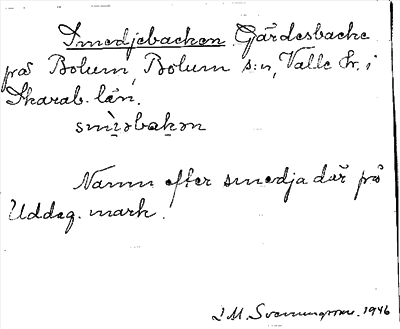 Smedjebacken Gärdesbacke
på Bolum, Bolum s:n, Valle hr. i
Skarab. län.
smìǝbakǝn
Namn efter smedja där på
Uddag. mark.
J M. Svenungsson. 1946